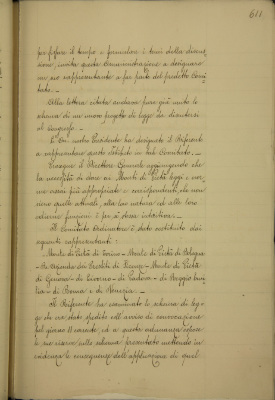 611
per fissare il tempo e formulare i temi della discus-
sione, invita questa Amministrazione a designare
un suo rappresentante a far parte del predetto Comi-
tato. —
Alla lettera citata andava pure già unito lo
schema di un nuovo progetto di legge da discutersi
al Congresso. —
L'On. nostro Presidente ha designato il Referente
a rappresentare questo Istituto in tal Comitato. —
Prosegue il Direttore Generale aggiungendo che
la necessità di dare ai Monti di Pietà leggi e nor-
me assai più appropriate e corrispondenti che non
siano quelle attuali, alla loro natura ed alle loro
odierne funzioni è per sè stessa intuitiva. —
Il Comitato Ordinatore è stato costituito dai
seguenti rappresentanti:
Monte di Pietà di Torino - Monte di Pietà di Bologna
- Azienda dei Presti di Firenze - Monte di Pietà
di Genova - di Livorno - di Padova - di Reggio Emi-
lia - di Roma e di Venezia. —
Il Referente ha esaminato lo schema di leg-
ge che era stato spedito coll'avviso di convocazione
pel giorno 11 corrente ed a questa adunanza espose
le sue riserve sullo schema presentato mettendo in
evidenza le conseguenze dell'applicazione di quel